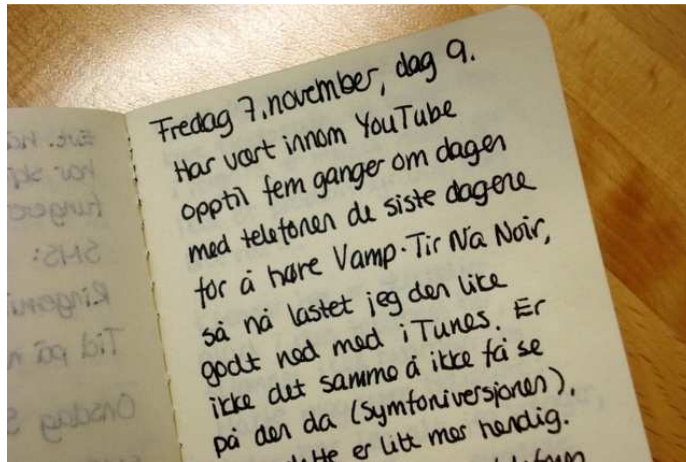 Fredag 7. november, dag 9.
Har vært innom YouTube
opptil fem ganger om dagen
med telefonen de siste dagene
for å høre Vamp-Tir Na Noir,
så nå lastet jeg den like
godt ned med iTunes. Er
ikke det samme å ikke få se
på den da (symfoniversjonen).
er litt mer hendig.